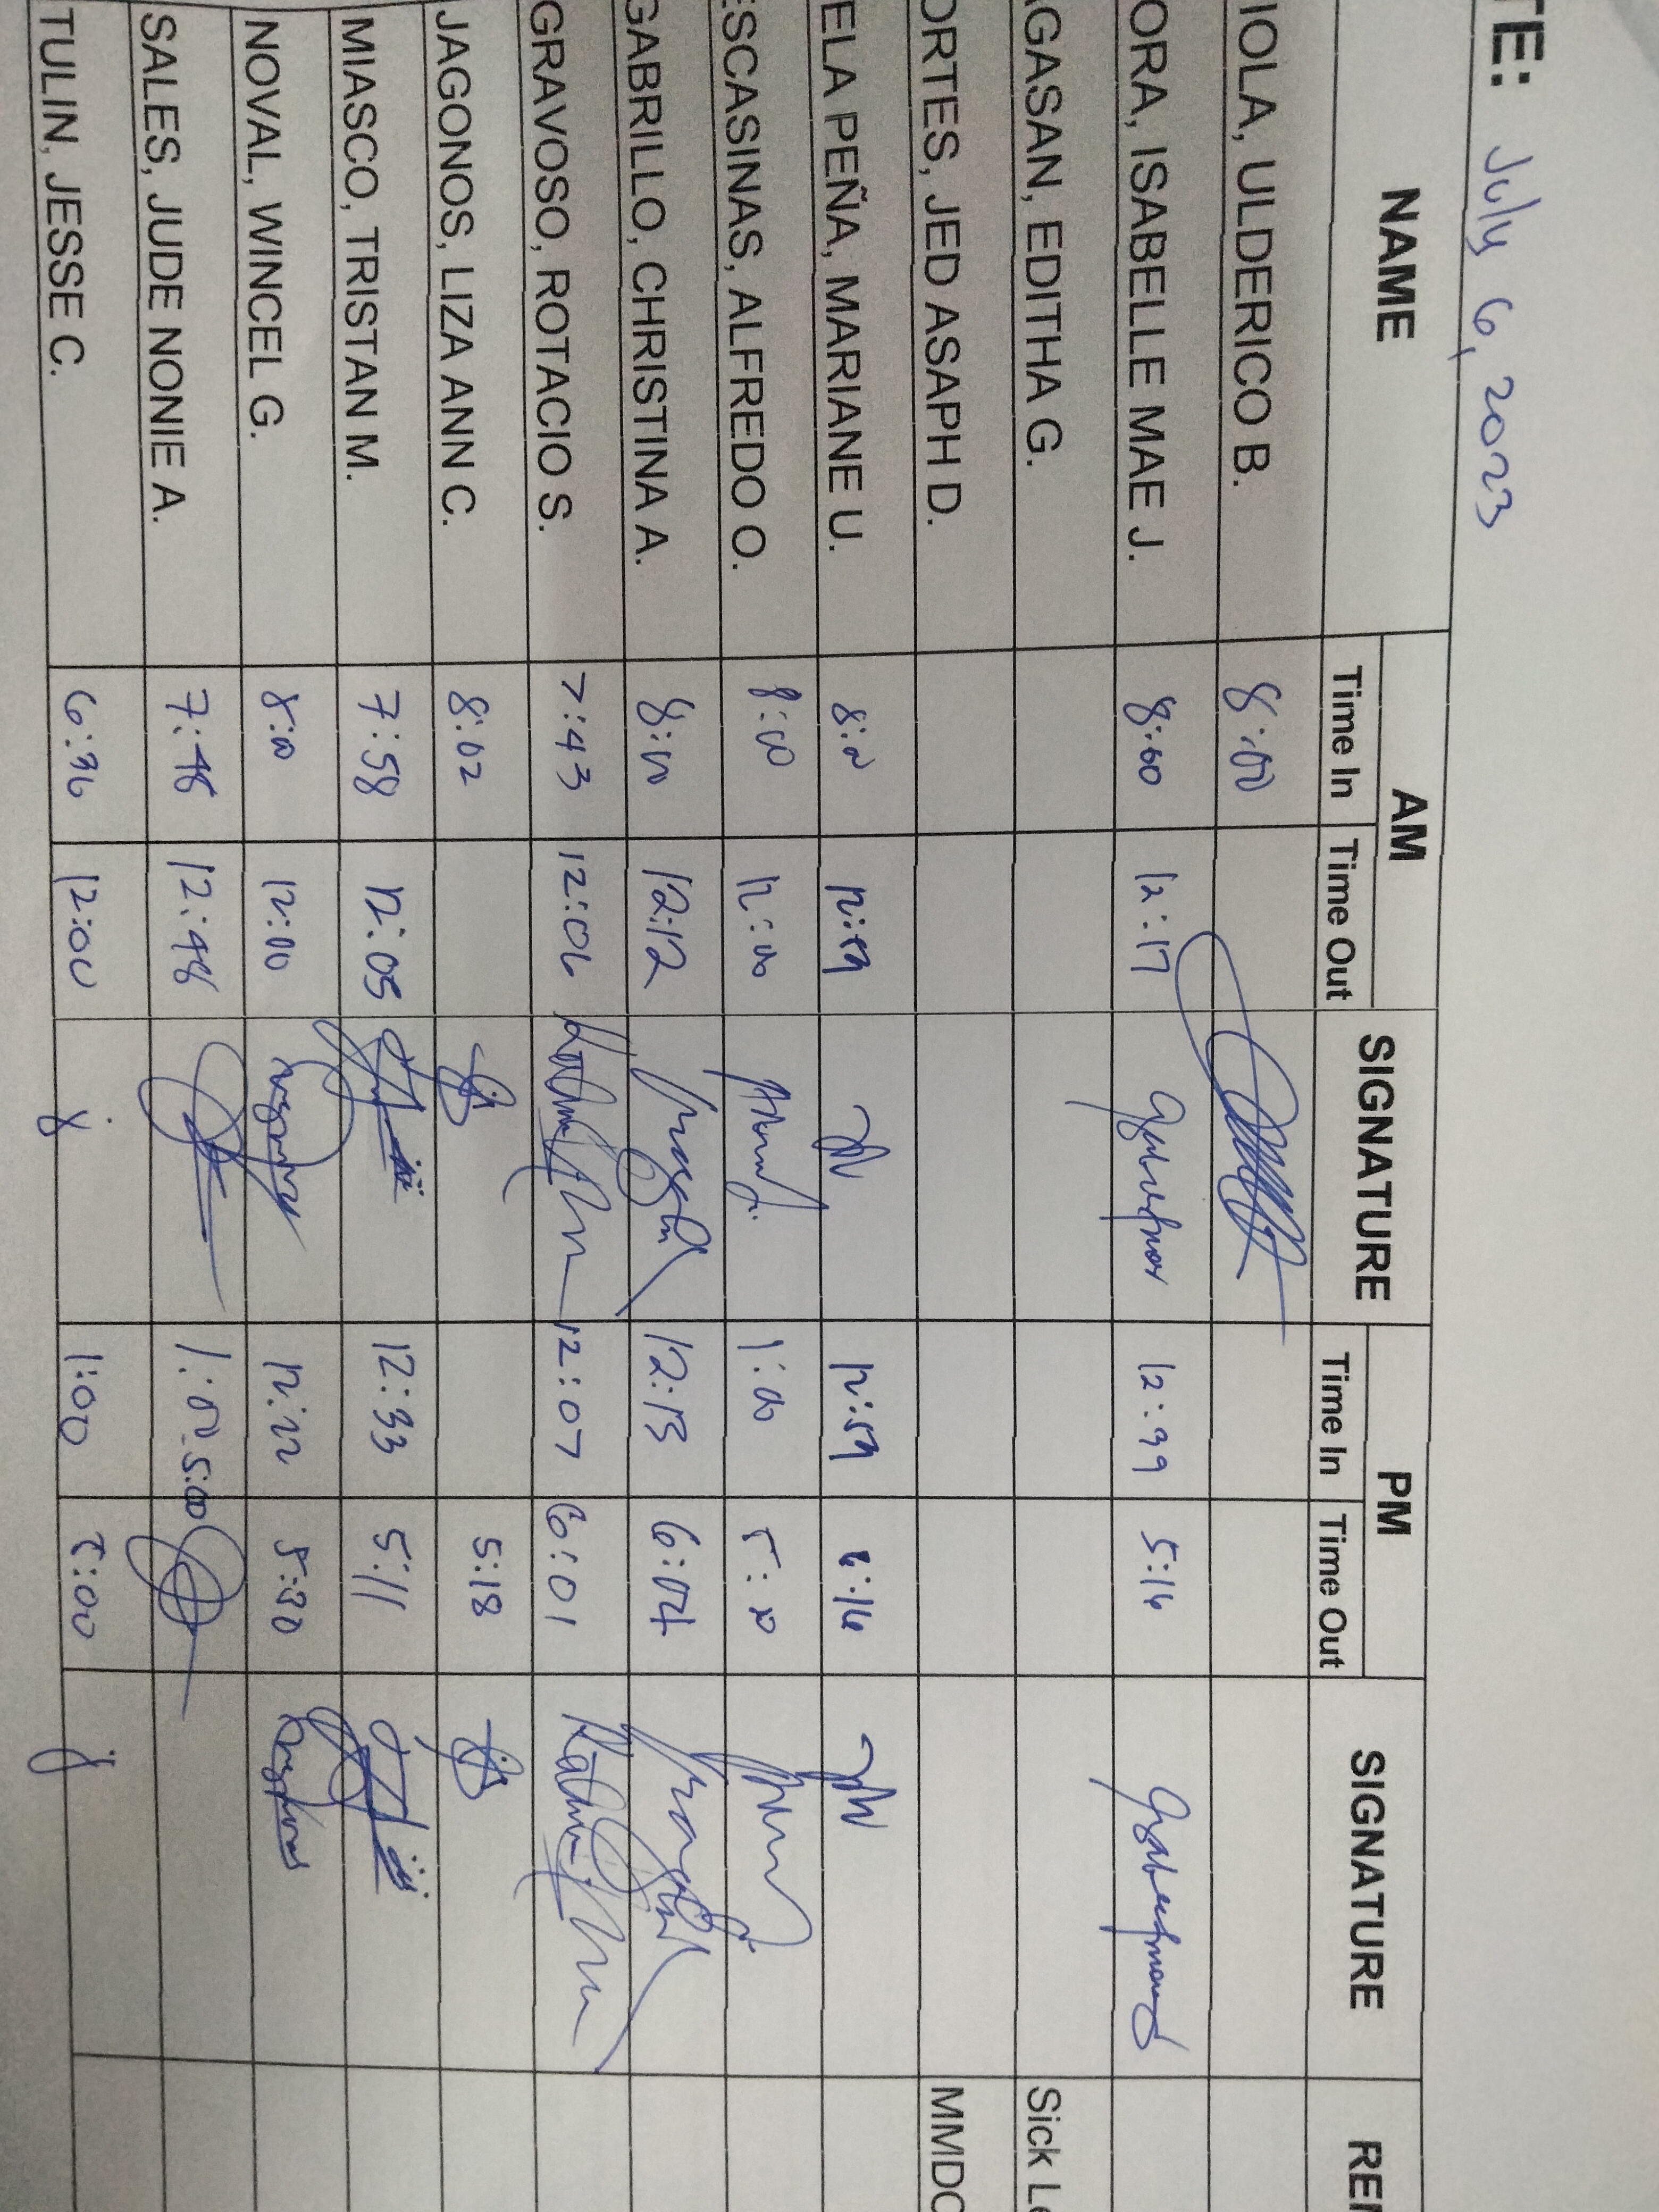 TE: July 6, 2023
NAME AM SIGNATURE PM SIGNATURE REM
Time In Time Out Time In Time Out
IOLA, ULDERICO B. 8:00
ORA, ISABELLE MAE J. 8:00 12:17 12:39 5:16
GASAN, EDITHA G. Sick Le
ORTES, JED ASAPH D. MMDC
ELA PEÑA, MARIANE U. 8:00 12:59 12:59 6:16
ESCASINAS, ALFREDO O. 8:00 12:00 1:00 5:30
GABRILLO, CHRISTINA A. 8:00 12:12 12:13 6:04
GRAVOSO, ROTACIO S. 7:43 12:06 12:07 6:01
JAGONOS, LIZA ANN C. 8:02 5:18
MIASCO, TRISTAN M. 7:58 12:05 12:33 5:11
NOVAL, WINCEL G. 8:00 12:00 12:22 5:30
SALES, JUDE NONIE A. 7:48 12:48 1:00 5:00
TULIN, JESSE C. 6:36 12:00 1:00 5:00